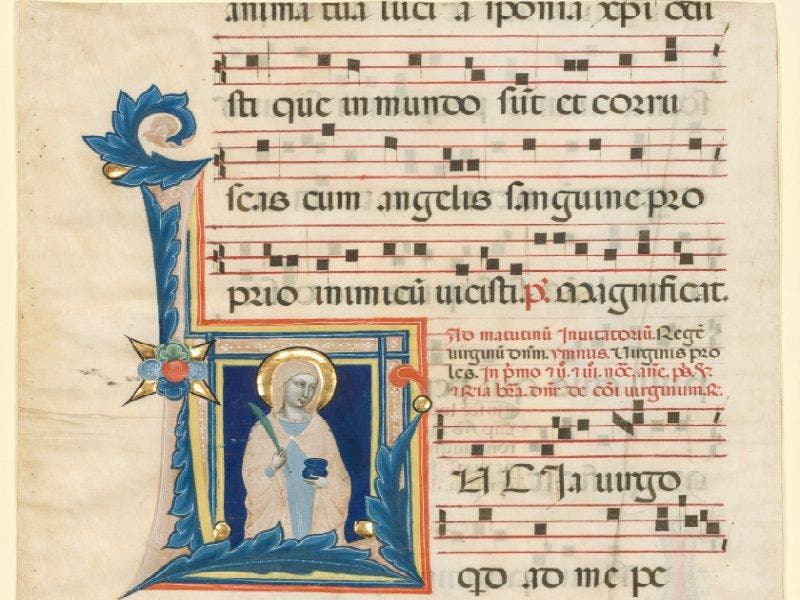 anima tua luci a sponsa xpi odi
sti que in mundo sūt et corru
scas cum angelis sanguine pro
prio inimicū uicisti. p. Magnificat.
Ad matutinū Inuitatoriū. Regē
uirginū dnm. ymnus. Uirginis pro
les. In pmo ⁊ ii. ⁊ iii. noc. ane. ps.
dnr de cōi uirginum. R.
U C Ia uirgo
qd ad me pe